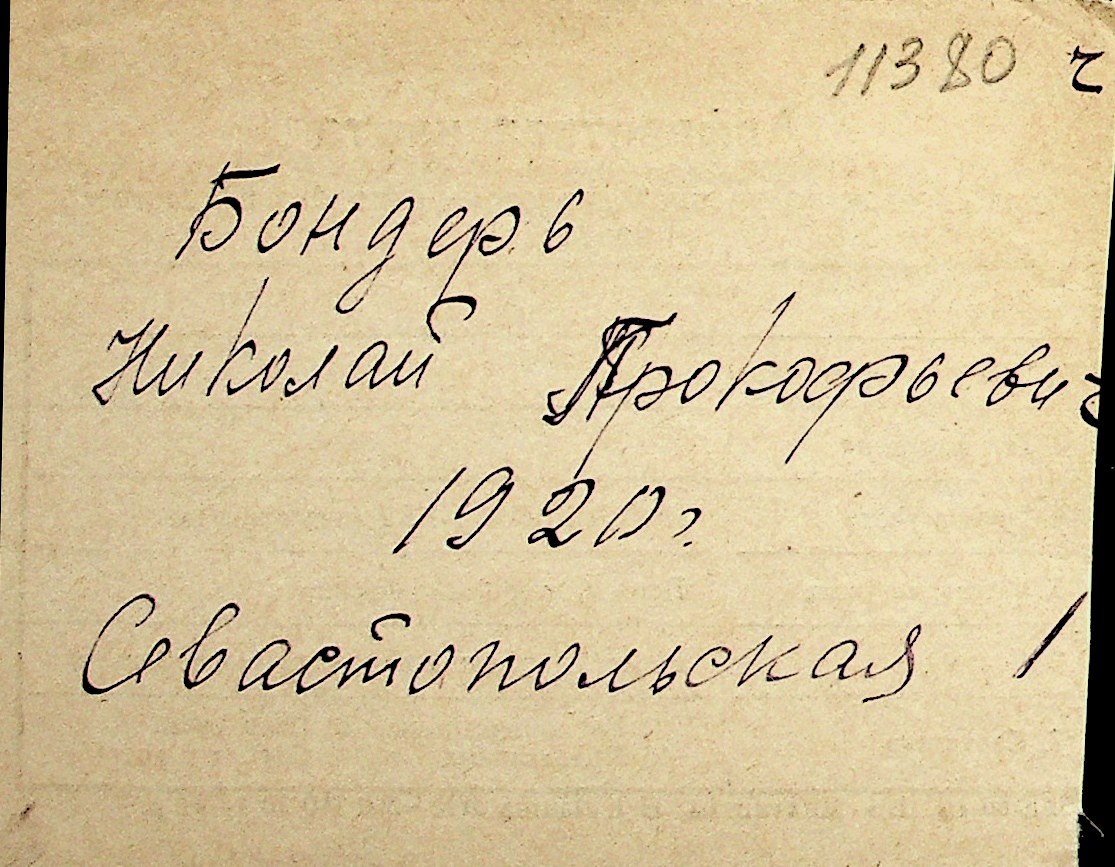 11380 ч
Бондерь
Николай Прокофьевич
1920г.
Севастопольская 1